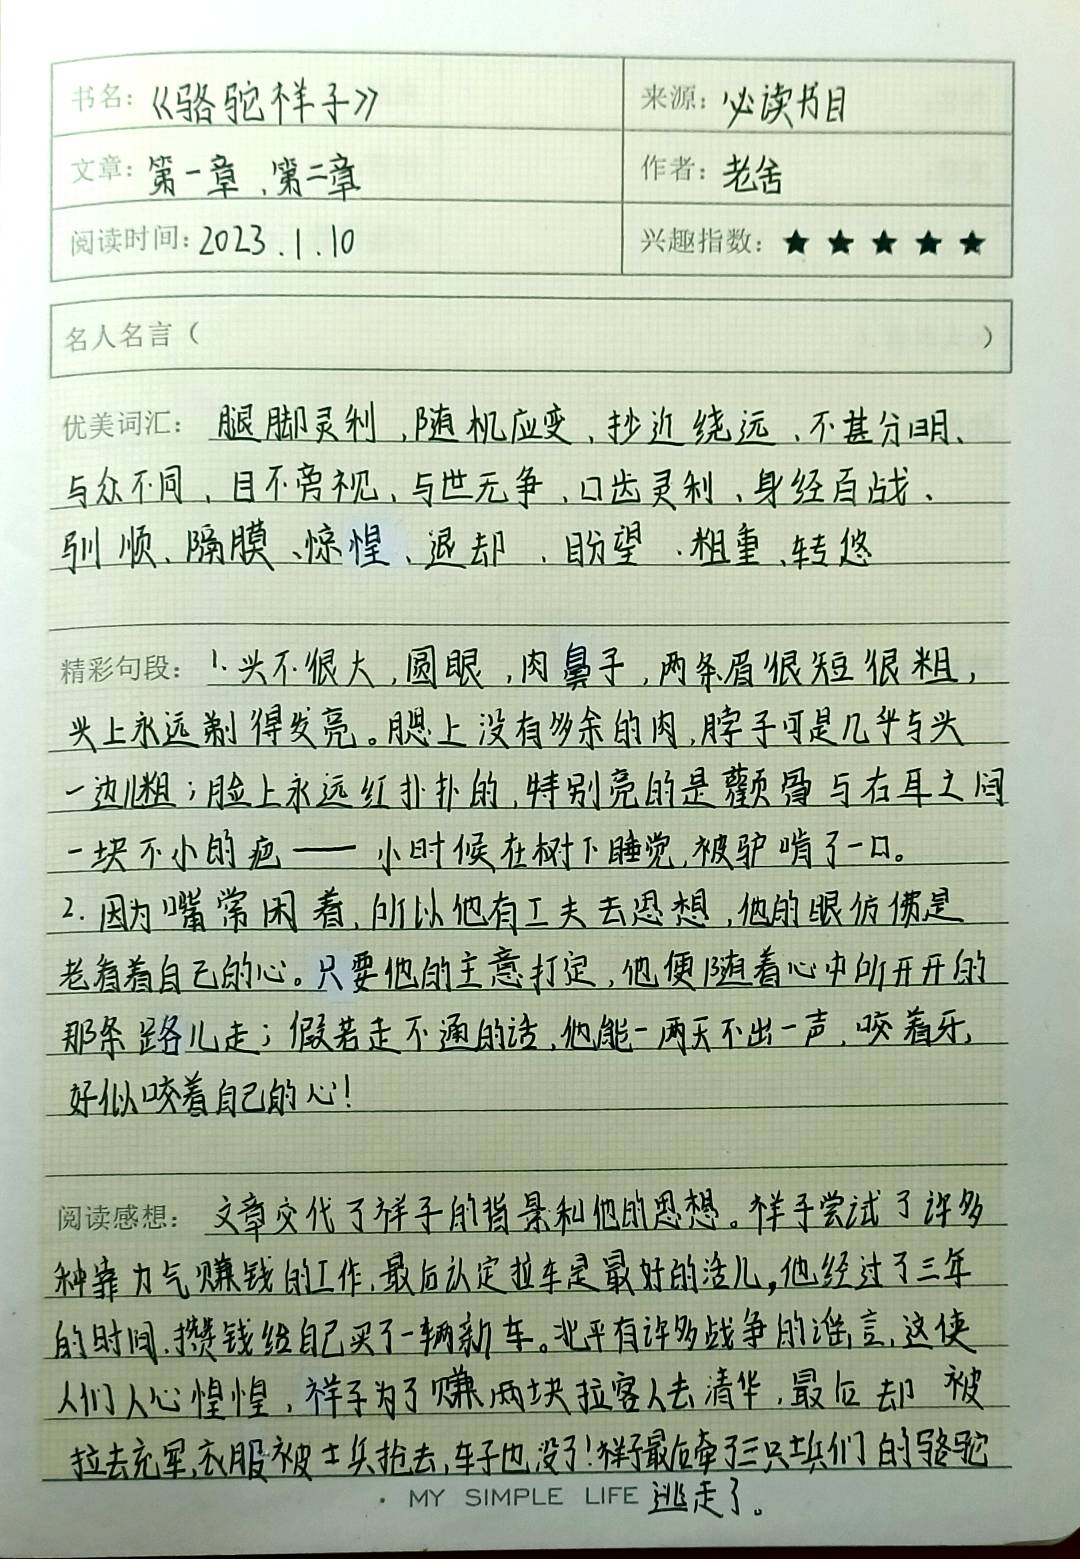 书名：《骆驼祥子》 来源：必读书目
文章：第一章、第二章 作者：老舍
阅读时间：2023.1.10 兴趣指数：★★★★★
名人名言（ ）
优美词汇： 腿脚灵利、随机应变、抄近绕远、不甚分明、
与众不同、目不旁视、与世无争、口齿灵利、身经百战、
驯顺、隔膜、惊惶、退却、盼望、粗重、转悠
精彩句段： 1.头不很大，圆眼，肉鼻子，两条眉很短很粗，
头上永远剃得发亮。腮上没有多余的肉，脖子可是几乎与头
一边儿粗；脸上永远红扑扑的，特别亮的是颧骨与右耳之间
一块不小的疤——小时候在树下睡觉，被驴啃了一口。
2.因为嘴常闲着，所以他有工夫去思想，他的眼仿佛是
老看着自己的心。只要他的主意打定，他便随着心中所开开的
那条路儿走；假若走不通的话，他能一两天不出一声，咬着牙，
好似咬着自己的心！
阅读感想： 文章交代了祥子的背景和他的思想。祥子尝试了许多
种靠力气赚钱的工作，最后认定拉车是最好的活儿，他经过了三年
的时间，攒钱给自己买了一辆新车。北平有许多战争的谣言，这使
人们人心惶惶，祥子为了赚两块拉客人去清华，最后却被
拉去充军，衣服被士兵抢去，车子也没了！祥子最后牵了三只士兵们的骆驼
· MY SIMPLE LIFE 逃走了。